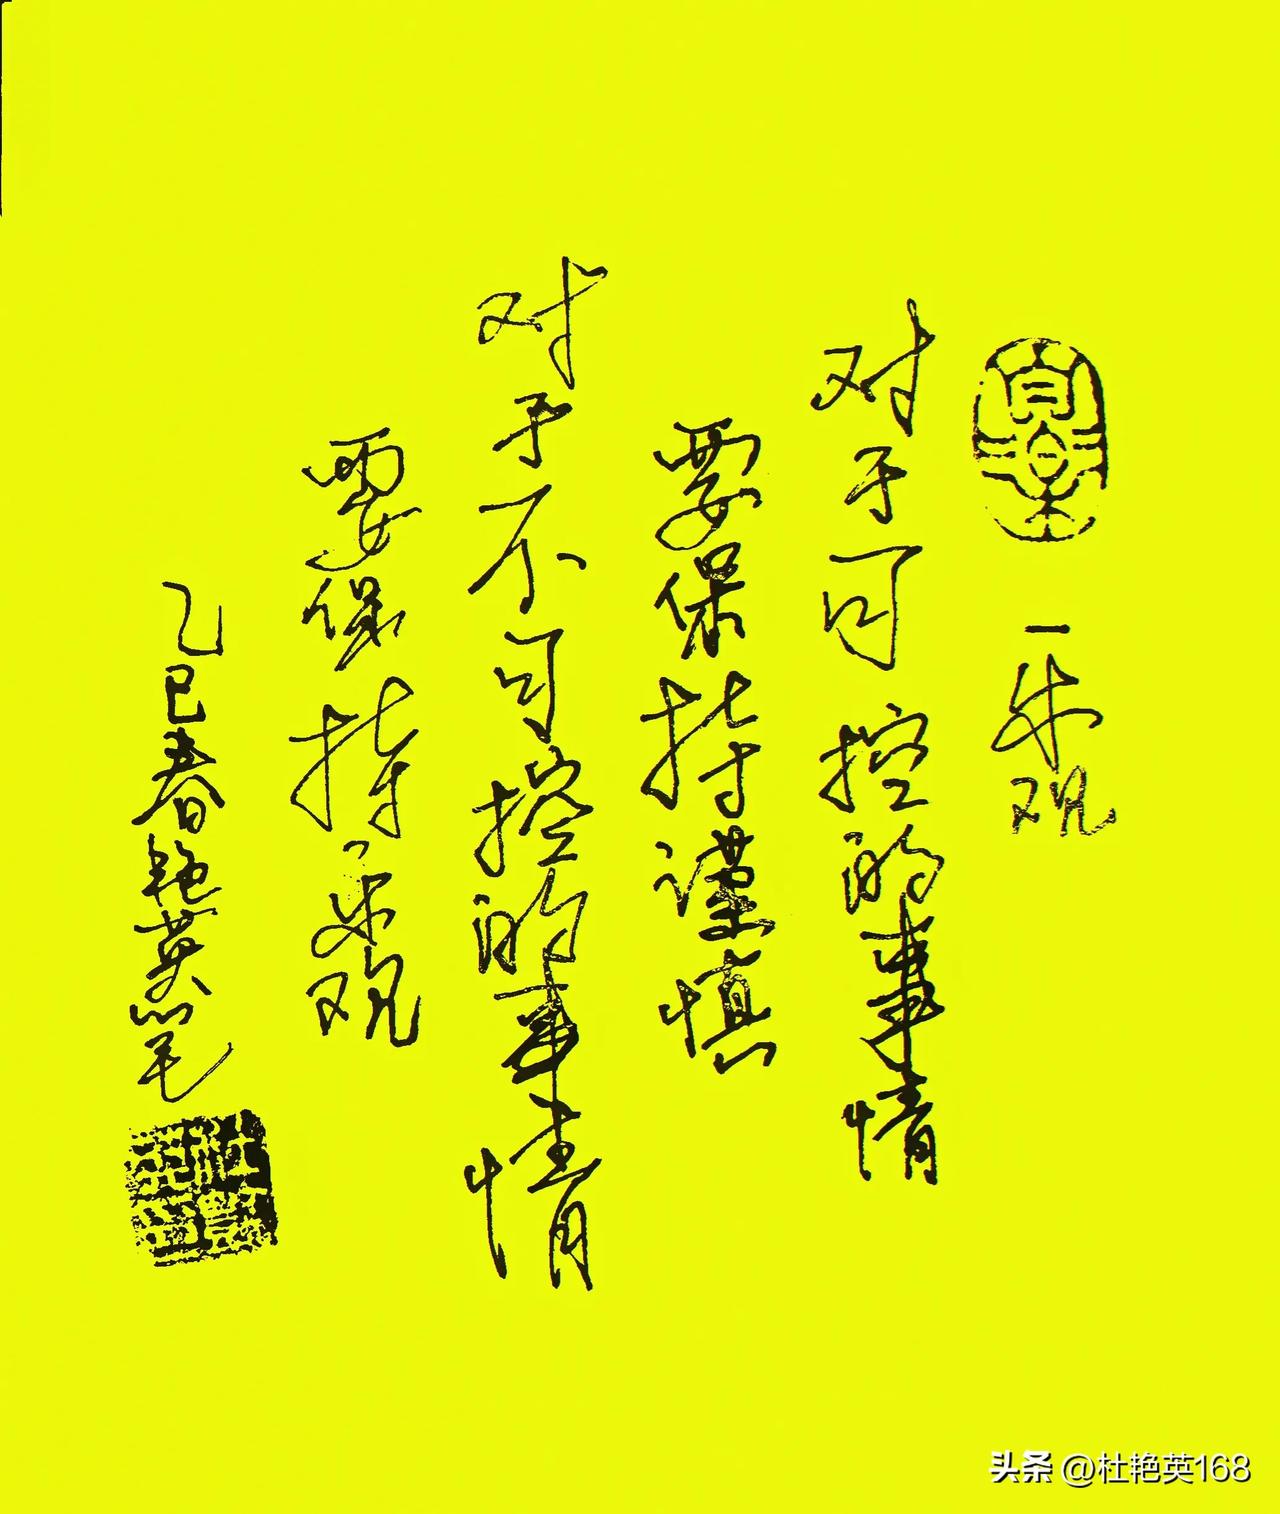 乐观
对于可控的事情
要保持谨慎
对于不可控的事情
要保持乐观
乙巳春艳英笔
头条 @杜艳英168